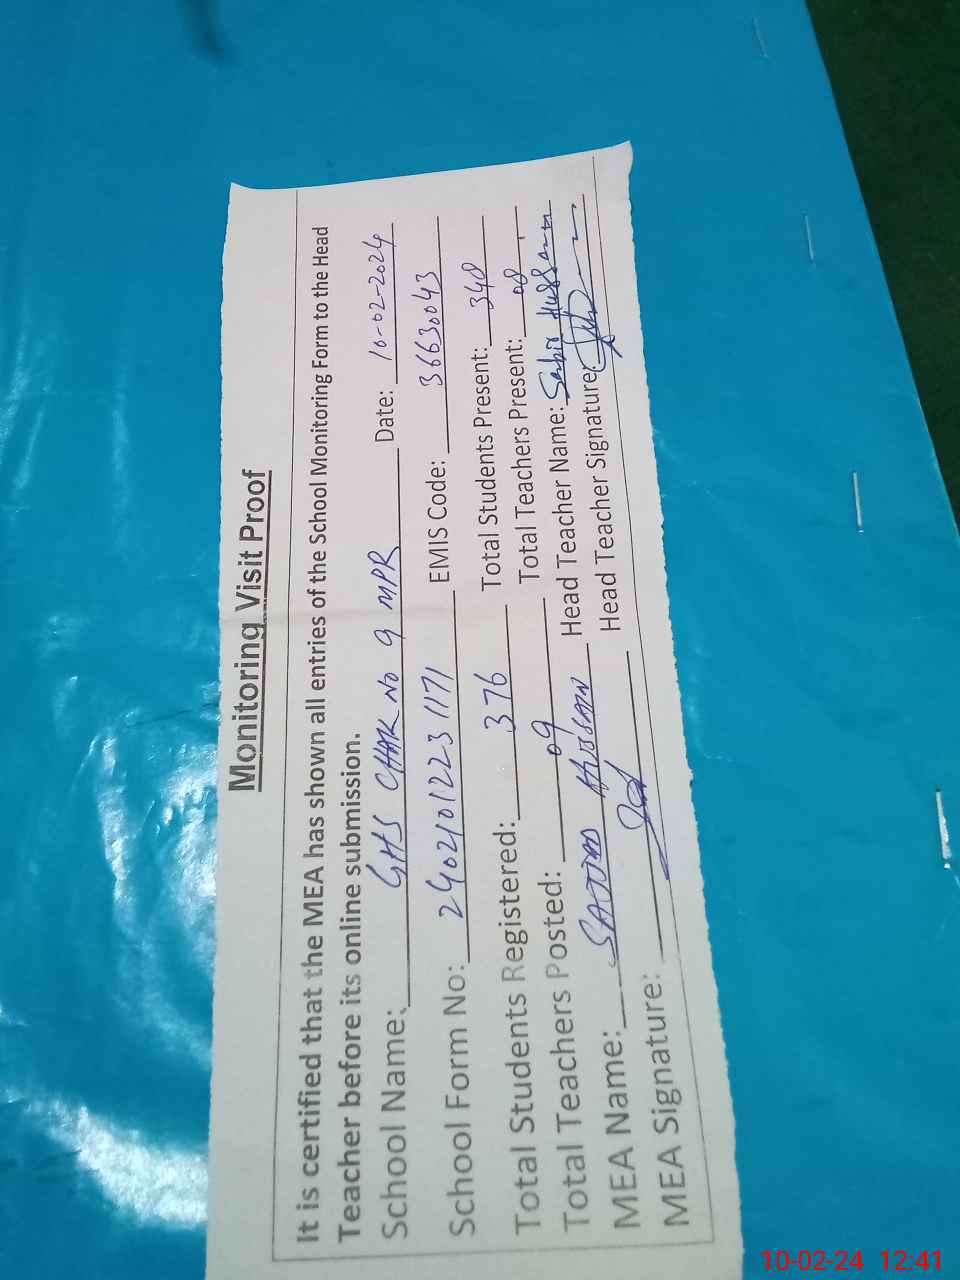 Monitoring Visit Proof
It is certified that the MEA has shown all entries of the School Monitoring Form to the Head
Teacher before its online submission.
School Name: GHS CHAK No 9 MPR Date: 10-02-2024
School Form No: 24021012231171 EMIS Code: 36630043
Total Students Registered: 376 Total Students Present: 348
Total Teachers Posted: 09 Total Teachers Present: 08
MEA Name: SAJJAD HUSSAIN Head Teacher Name: Sabir Hussain
MEA Signature: Head Teacher Signature:
10-02-24 12:41